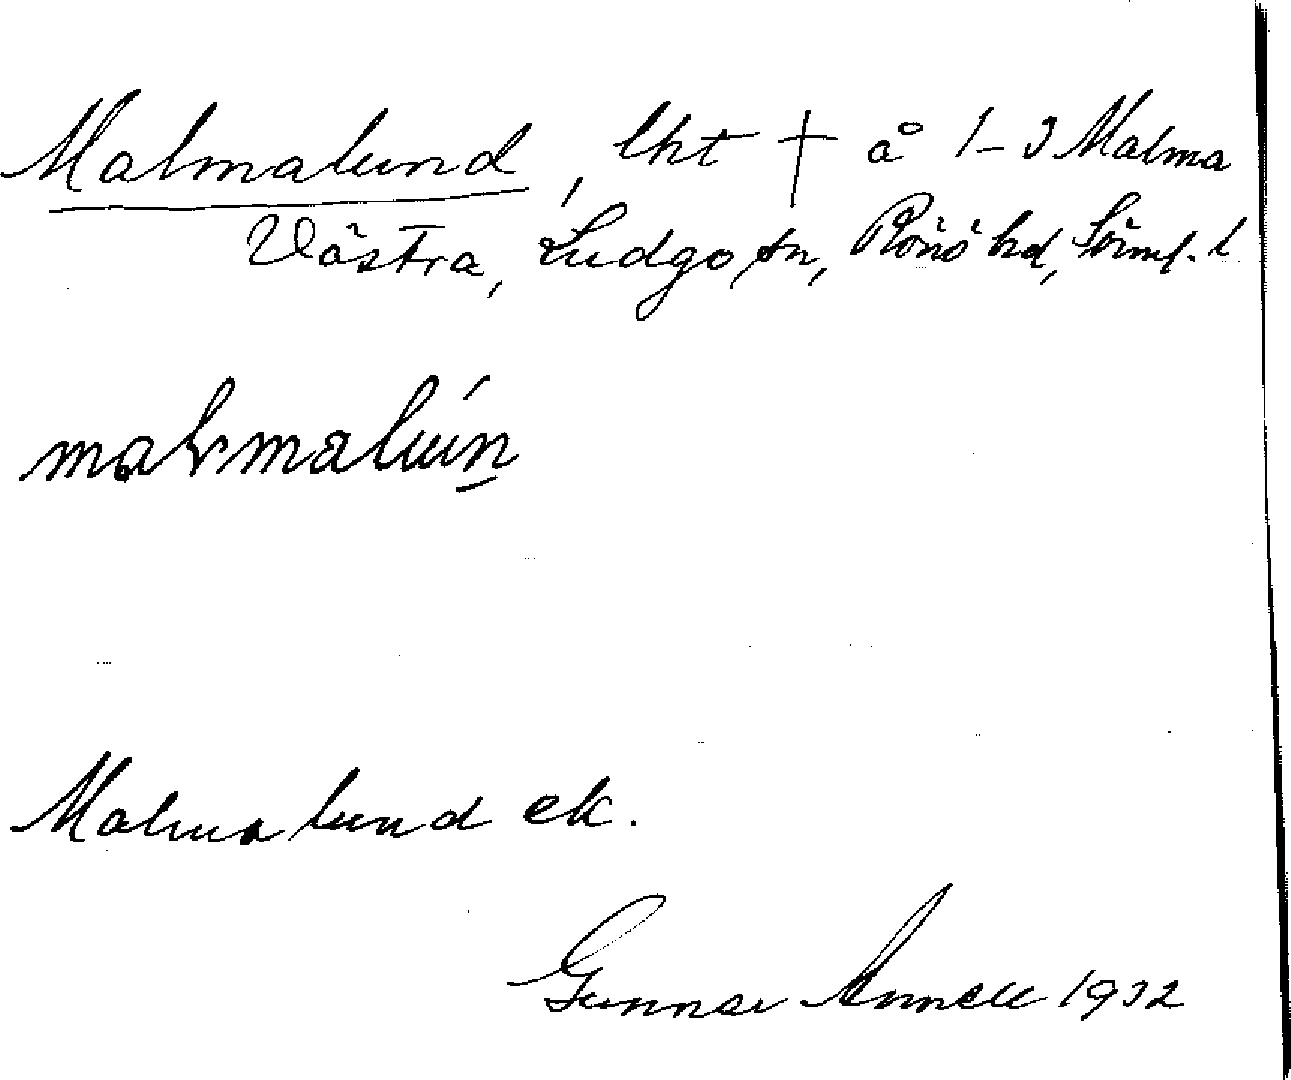 Malmalund, lht † å 1-3 Malma
Västra, Ludgo sn, Rönö hd, Sörml. l.
Malmalund ek.
Gunnar Annell 1932